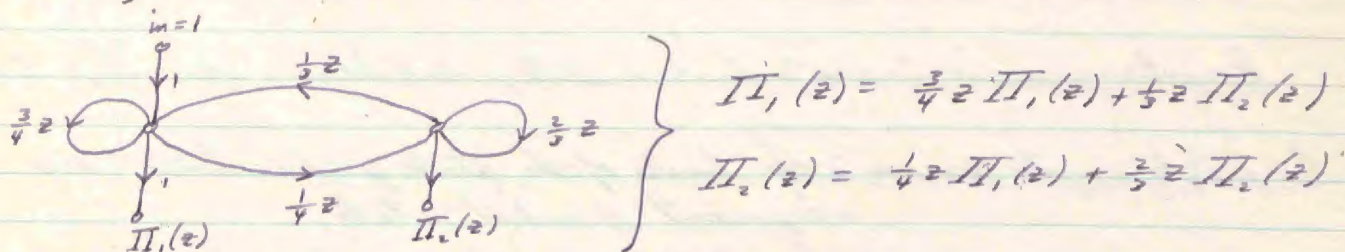 in=1
1
1/3 z
3/4 z
2/3 z
1
1/4 z
Π₁(z)
Π₂(z)
Π₁(z) = 3/4 z Π₁(z) + 1/3 z Π₂(z)
Π₂(z) = 1/4 z Π₁(z) + 2/3 z Π₂(z)